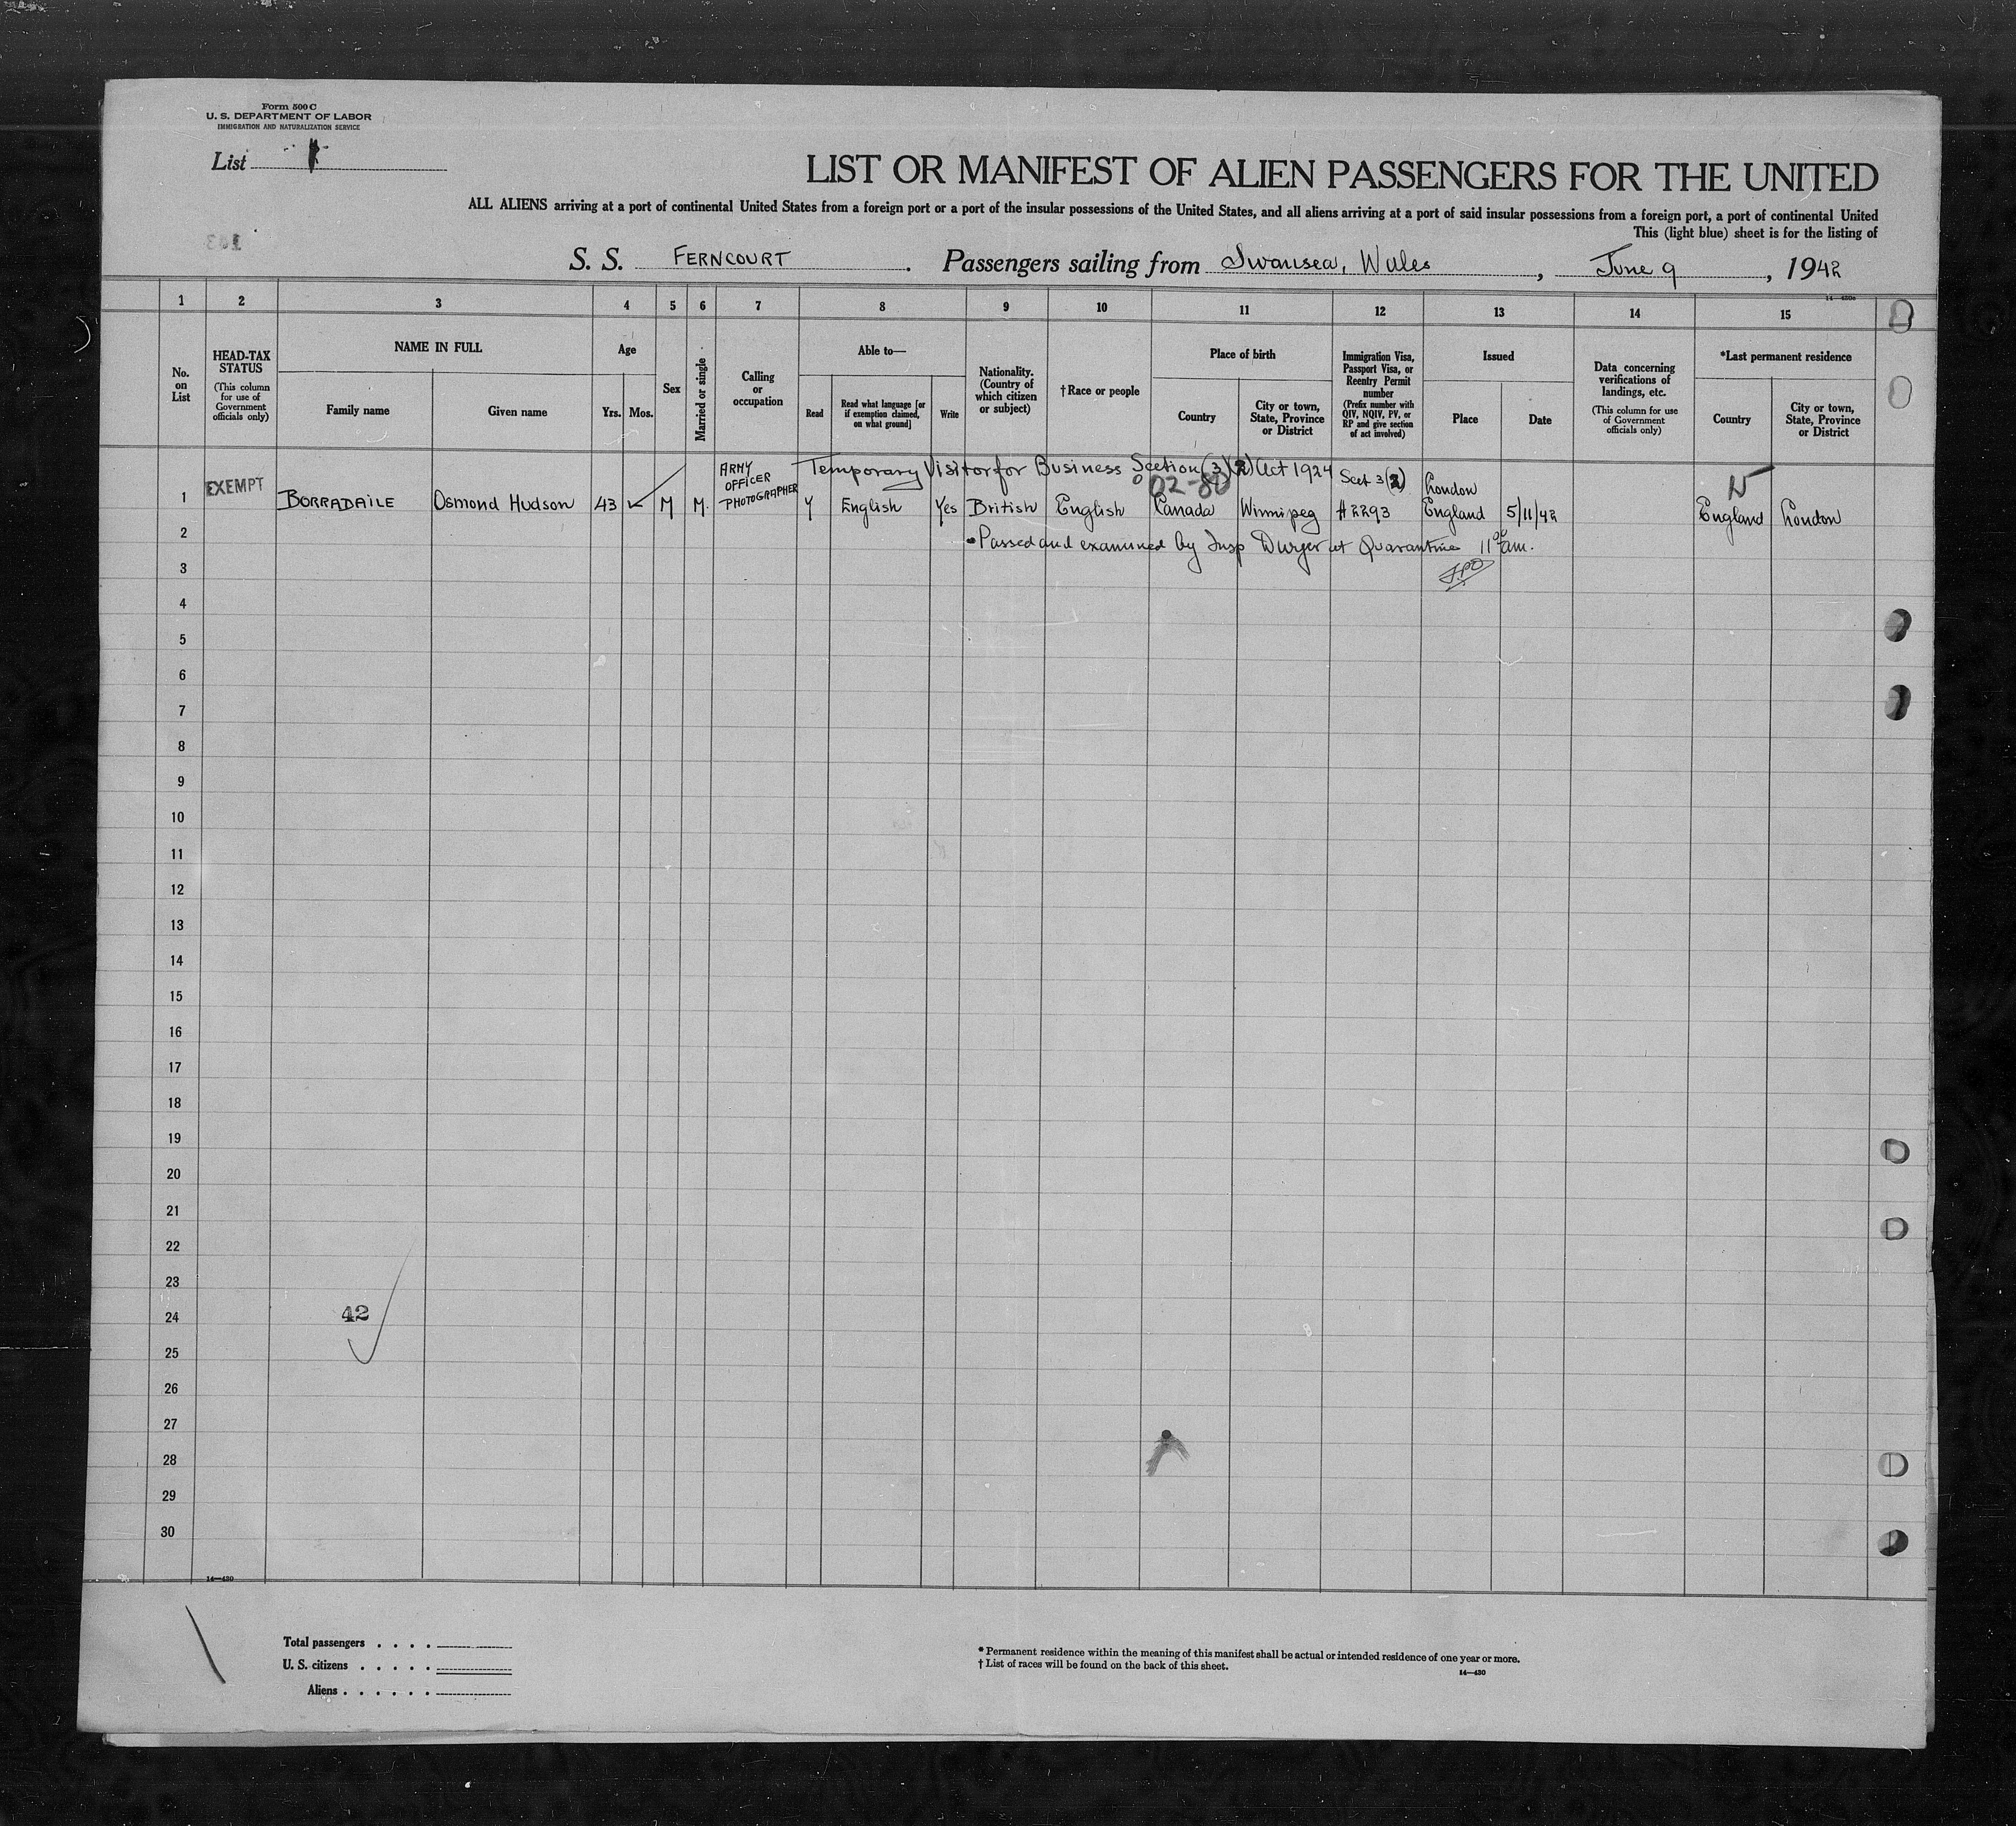 Form 500 C
U. S. DEPARTMENT OF LABOR
IMMIGRATION AND NATURALIZATION SERVICE
List
LIST OR MANIFEST OF ALIEN PASSENGERS FOR THE UNITED
ALL ALIENS arriving at a port of continental United States from a foreign port or a port of the insular possessions of the United States, and all aliens arriving at a port of said insular possessions from a foreign port, a port of continental United
This (light blue) sheet is for the listing of
S. S. FERNCOURT. Passengers sailing from Swansea, Wales, June 9, 1942
1 2 3 4 5 6 7 8 9 10 11 12 13 14 15
No. on List
HEAD-TAX STATUS
(This column for use of Government officials only)
NAME IN FULL
Family name
Given name
Age
Yrs. Mos.
Sex
Married or single
Calling or occupation
Able to—
Read
Read what language [or if exemption claimed, on what ground]
Write
Nationality. (Country of which citizen or subject)
†Race or people
Place of birth
Country
City or town, State, Province or District
Immigration Visa, Passport Visa, or Reentry Permit number
(Prefix number with QIV, NQIV, PV, or RP and give section of act involved)
Issued
Place
Date
Data concerning verifications of landings, etc.
(This column for use of Government officials only)
*Last permanent residence
Country
City or town, State, Province or District
Temporary Visitor for Business Section (3)(2) Act 1924
02-80
1 EXEMPT BORRADAILE Osmond Hudson 43 M M. ARMY OFFICER PHOTOGRAPHER Y English Yes British English Canada Winnipeg Sect 3(2) #2293 London England 5/11/42 England London
2 Passed and examined by Insp Dwyer at Quarantine 11 00 am.
3 JPD
4
5
6
7
8
9
10
11
12
13
14
15
16
17
18
19
20
21
22
23
24 42
25
26
27
28
29
30
14—430
Total passengers . . . .
U. S. citizens . . . . .
Aliens . . . . . .
* Permanent residence within the meaning of this manifest shall be actual or intended residence of one year or more.
† List of races will be found on the back of this sheet.
14—430